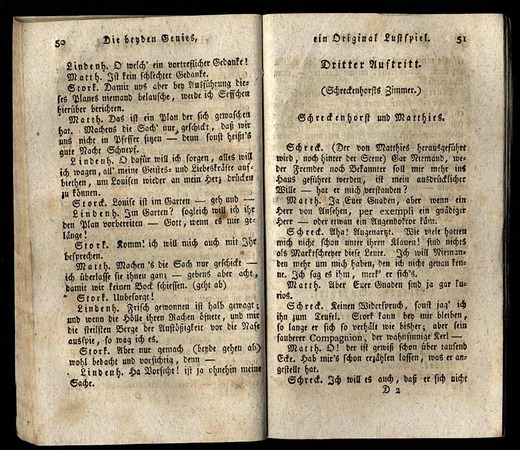 50 Die beyden Genies,
Lindenh. O welch' ein vortreflicher Gedanke!
Matth. Ist kein schlechter Gedanke.
Stork. Damit uns aber bey Ausführung die-
ses Planes niemand belausche, werde ich Seffchen
hierüber berichten.
Matth. Das ist ein Plan der sich gewaschen
hat. Machens die Sach' nur geschickt, daß wir
uns nicht in Pfeffer sitzen — denn sonst heißt's
gute Nacht Schnepf.
Lindenh. O dafür will ich sorgen, alles will
ich wagen, all' meine Geistes- und Liebeskräfte auf-
biethen, um Louisen wieder an mein Herz drücken
zu können.
Storck. Louise ist im Garten — geh und —
Lindenh. Im Garten? sogleich will ich ihr
den Plan vorbereiten — Gott, wenn es mir ge-
länge!
Stork. Komm! ich will mich auch mit Ihr
besprechen.
Matth. Machen's die Sach nur geschickt —
ich überlasse sie ihnen ganz — gebens aber acht,
damit wir keinen Bock schiessen. (geht ab)
Stork. Unbesorgt!
Lindenh. Frisch gewonnen ist halb gewagt;
und wenn die Hölle ihren Rachen öfnete, und mir
die steilsten Berge der Anstößigkeit vor die Nase
ausspie, so wag ich es.
Stork. Aber nur gemach (beyde gehen ab)
wohl bedacht und vorsichtig, denn —
Lindenh. Ha Vorsicht! ist ja ohnehin meine
Sache.
ein Original Lustspiel. 51
Dritter Auftritt.
(Schreckenhorsts Zimmer.)
Schreckenhorst und Matthies.
Schreck. (Der von Matthies herausgeführet
wird, noch hinter der Scene) Gar Niemand, we-
der Fremder noch Bekannter soll mir mehr ins
Haus geführet werden, ist mein ausdrücklicher
Wille — hat er mich verstanden?
Matth. Ja Euer Gnaden, aber wenn ein
Herr von Ansehen, per exempli ein gnädiger
Herr — oder etwan ein Augendoktor käm.
Schreck. Aha! Augenarzt. Wie viele hatten
mich nicht schon unter ihren Klauen! sind nichts
als Marktschreyer diese Leute. Ich will Nieman-
den mehr um mich haben, den ich nicht genau ken-
ne. Ich sag es ihm, merk' er sich's.
Matth. Aber Euer Gnaden sind ja gar ku-
rios.
Schreck. Keinen Widerspruch, sonst jag' ich
ihn zum Teufel. Stork kann bey mir bleiben,
so lange er sich so verhält wie bisher; aber sein
sauberer Compagnion, der wahnsinnige Kerl —
Matth. O! der ist gewiß schon über tausend
Ecke. Hab mir's schon erzählen lassen, was er an-
gestellt hat.
Schreck. Ich will es auch, daß er sich nicht
D 2